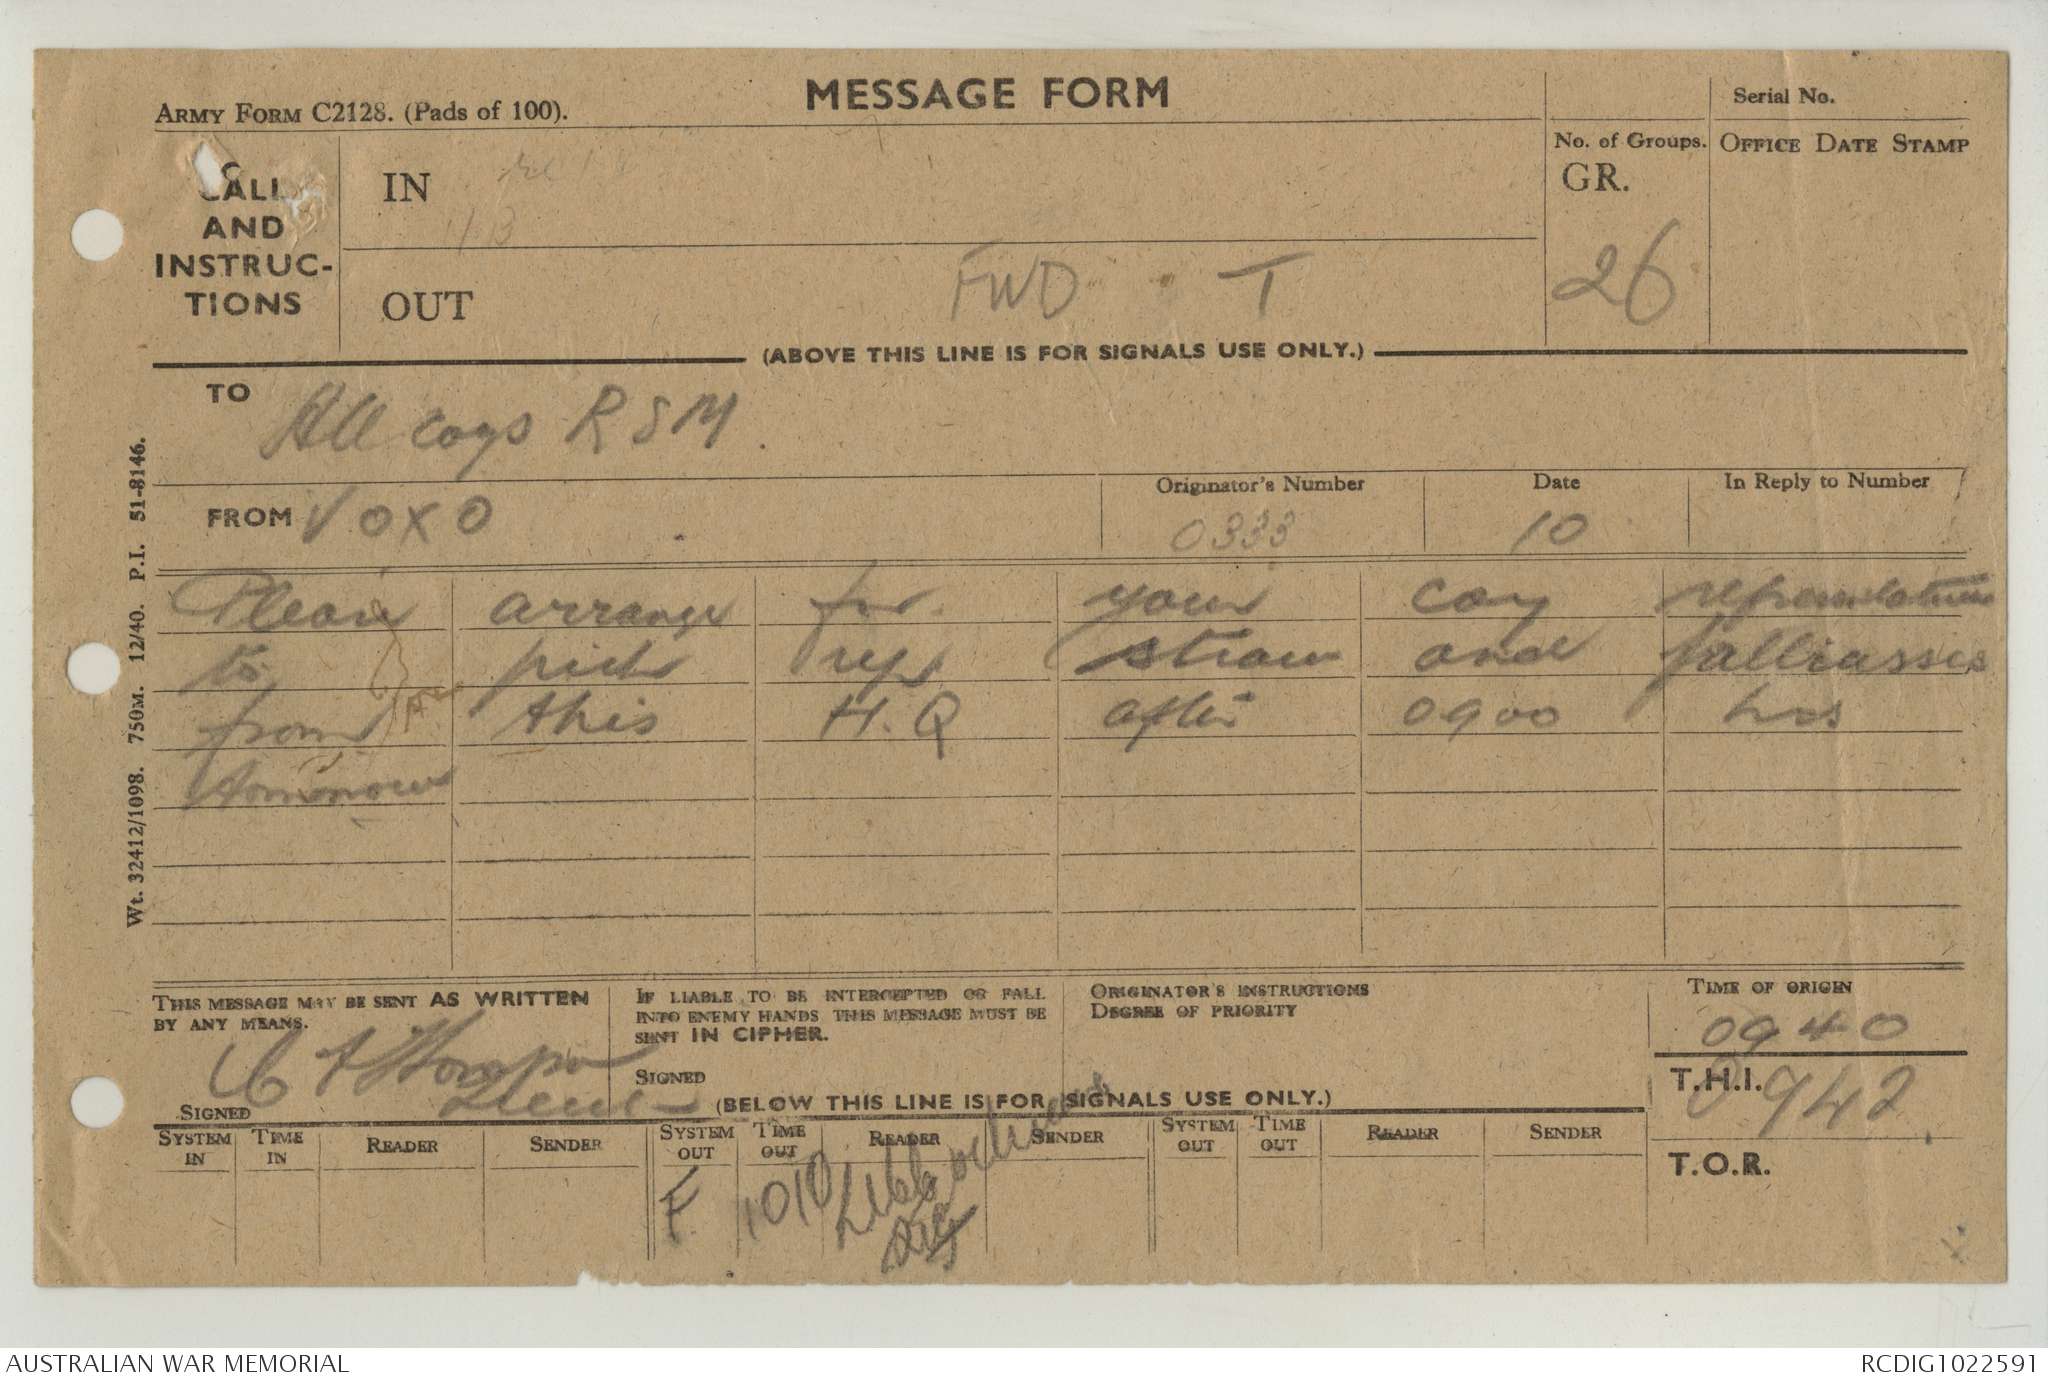 MESSAGE FORM
ARMY FORM C2128. (Pads of 100).
Serial No.
CALL AND INSTRUC-TIONS
IN
No. of Groups.
GR.
26
OFFICE DATE STAMP
OUT
FWD T
(ABOVE THIS LINE IS FOR SIGNALS USE ONLY.)
TO
All coys RSM.
FROM VOXO
Originator's Number
0333
Date
10
In Reply to Number
Please arrange for your coy representatives
to pick up straw and palliasses
from this H.Q after 0900 hrs
tomorrow
Wt. 32412/1098. 750M. 12/40. P.I. 51-8146.
THIS MESSAGE MAY BE SENT AS WRITTEN
BY ANY MEANS.
SIGNED
Lieut
IF LIABLE TO BE INTERCEPTED OR FALL
INTO ENEMY HANDS THIS MESSAGE MUST BE
SENT IN CIPHER.
SIGNED
ORIGINATOR'S INSTRUCTIONS
DEGREE OF PRIORITY
TIME OF ORIGIN
0940
T.H.I.
0942
T.O.R.
(BELOW THIS LINE IS FOR SIGNALS USE ONLY.)
SYSTEM IN TIME IN READER SENDER SYSTEM OUT TIME OUT READER SENDER SYSTEM OUT TIME OUT READER SENDER
F 1010
AUSTRALIAN WAR MEMORIAL
RCDIG1022591